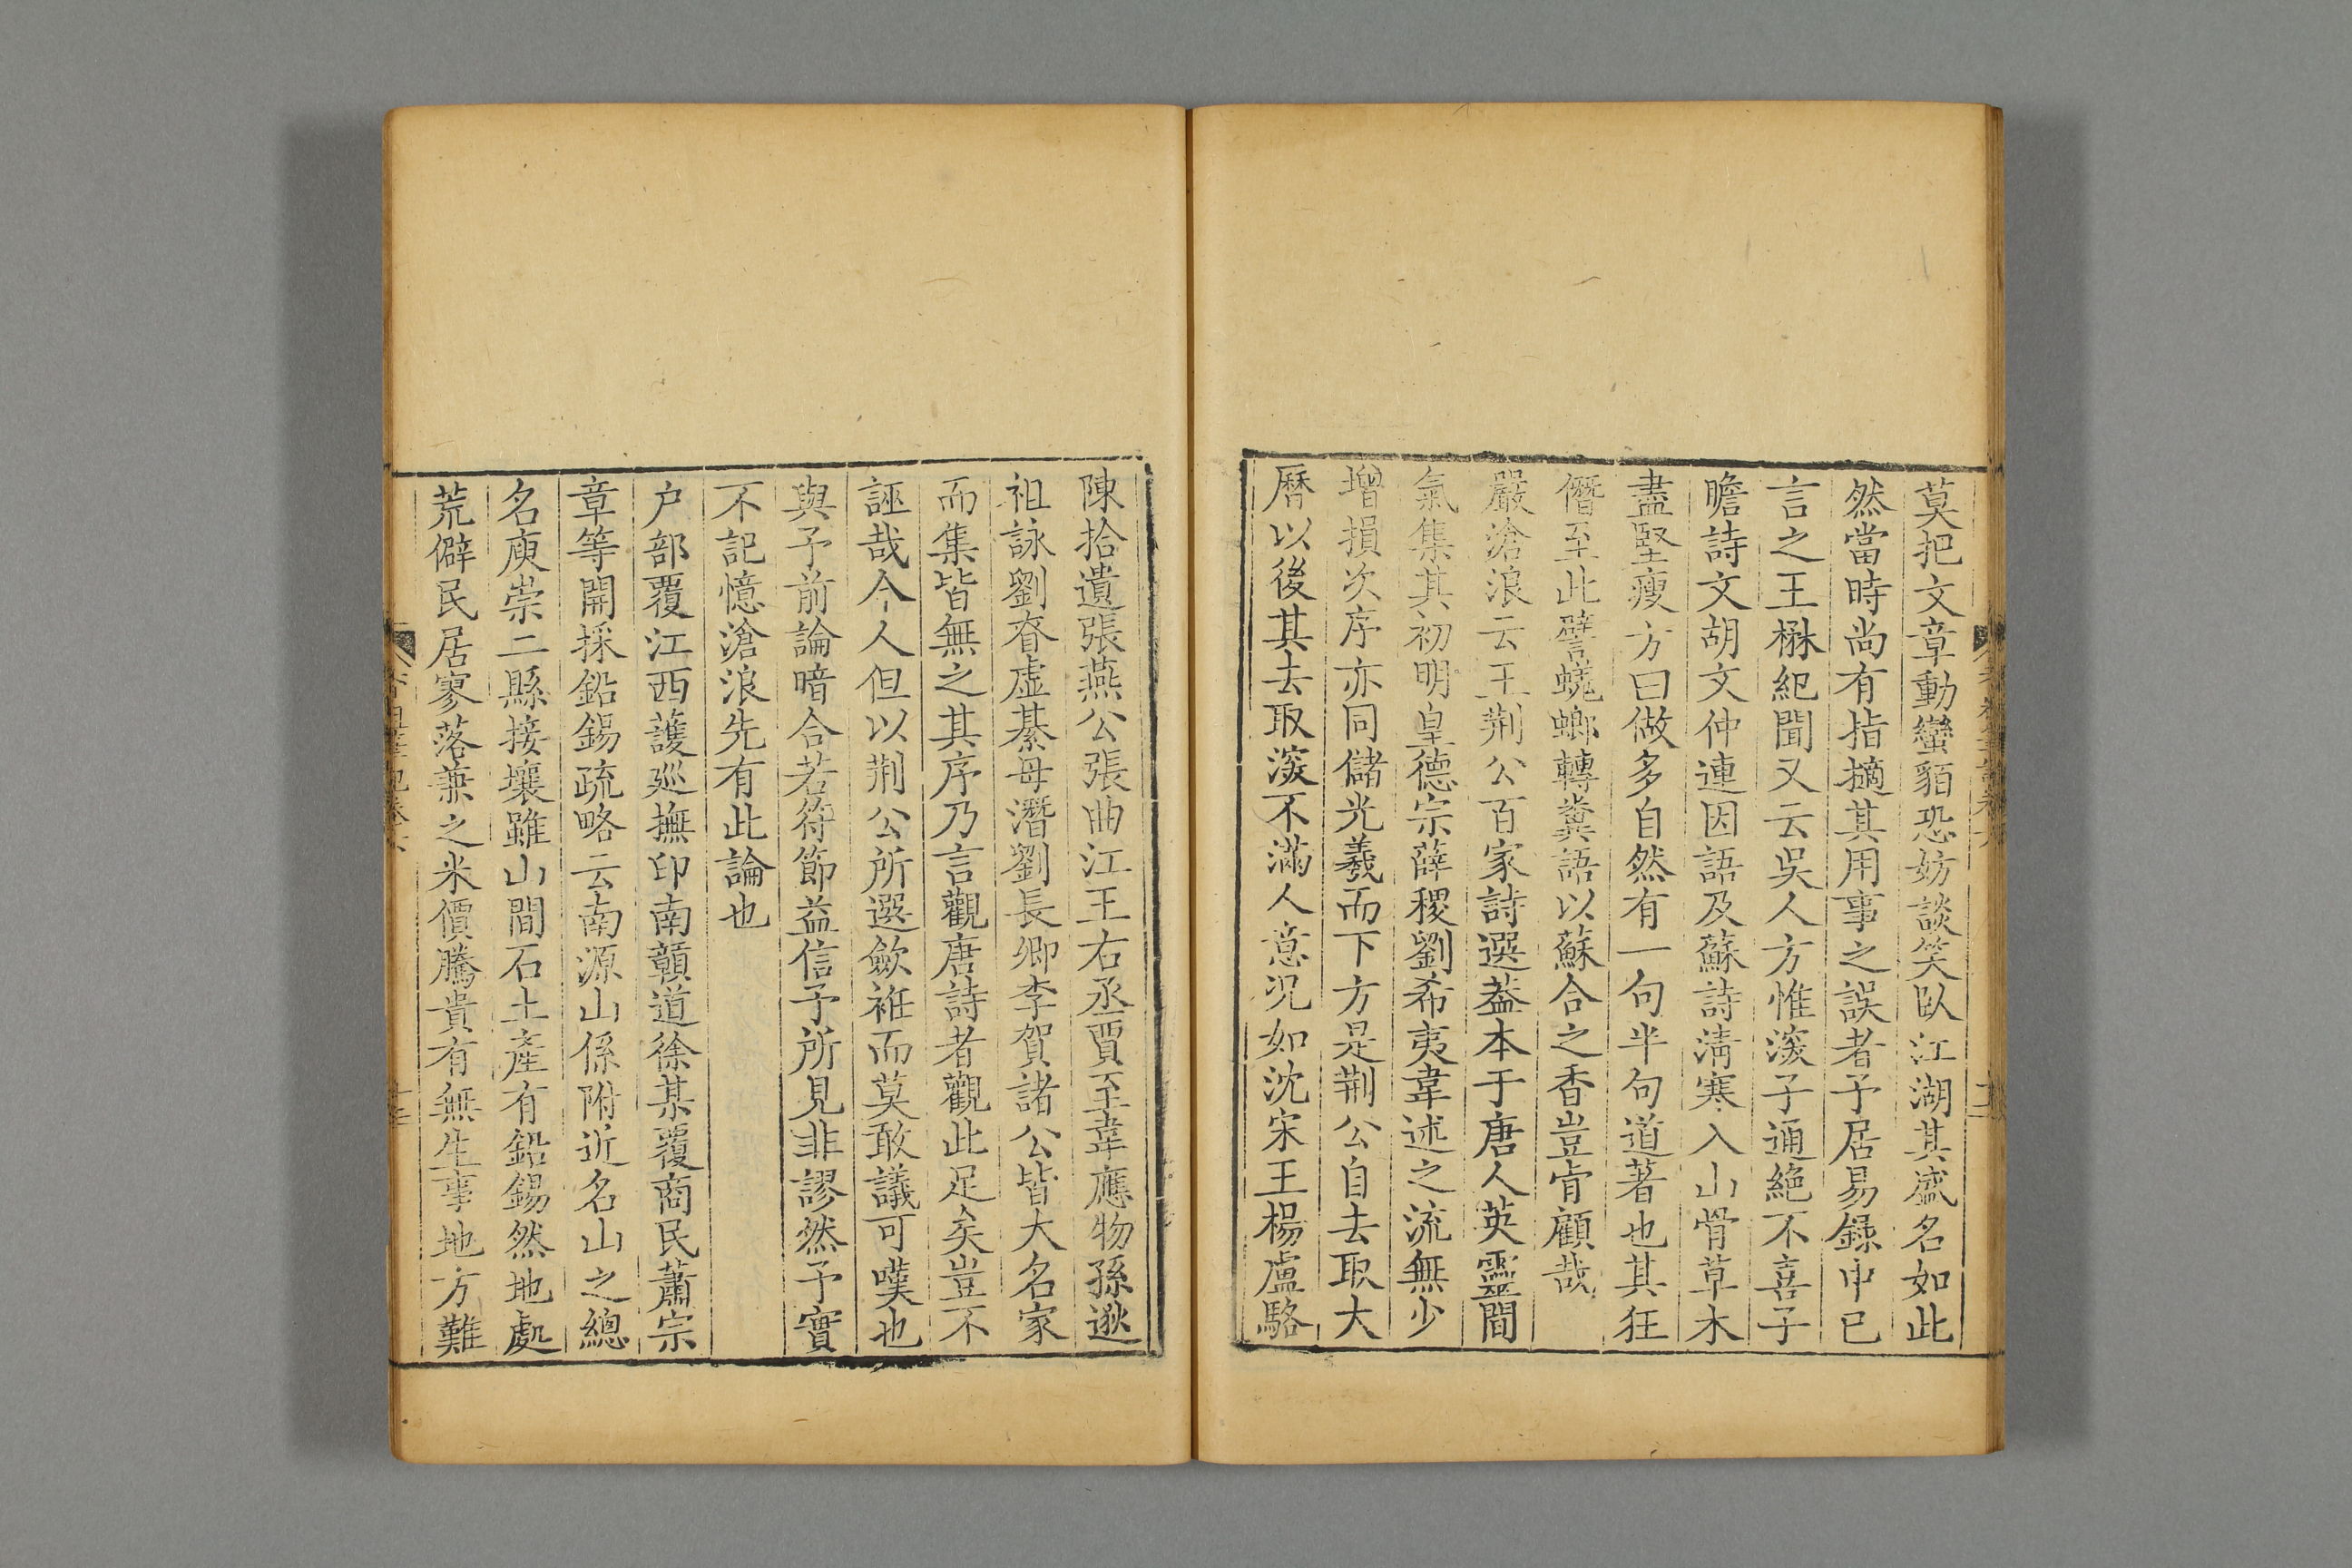 莫把文章動蠻貊恐妨談笑臥江湖其盛名如此
然當時尚有指摘其用事之誤者予居易錄中已
言之王楙紀聞又云吳人方惟深子通絕不喜子
瞻詩文胡文仲連因語及蘇詩淸寒入山骨草木
盡堅瘦方曰做多自然有一句半句道著也其狂
僭至此譬蜣螂轉糞語以蘇合之香豈肯顧哉
嚴滄浪云王荆公百家詩選葢本于唐人英靈間
氣集其初明皇德宗薛稷劉希夷韋述之流無少
增損次序亦同儲光羲而下方是荆公自去取大
曆以後其去取深不滿人意況如沈宋王楊盧駱
陳拾遺張燕公張曲江王右丞賈至韋應物孫逖
祖詠劉昚虛綦毋潛劉長卿李賀諸公皆大名家
而集皆無之其序乃言觀唐詩者觀此足矣豈不
誣哉今人但以荆公所選歛袵而莫敢議可嘆也
與予前論暗合若符節益信予所見非謬然予實
不記憶滄浪先有此論也
户部覆江西護廵撫印南贛道徐某覆商民蕭宗
章等開採鉛錫疏略云南源山係附近名山之總
名庾崇二縣接壤雖山間石土產有鉛錫然地處
荒僻民居寥落兼之米價騰貴有無生事地方難